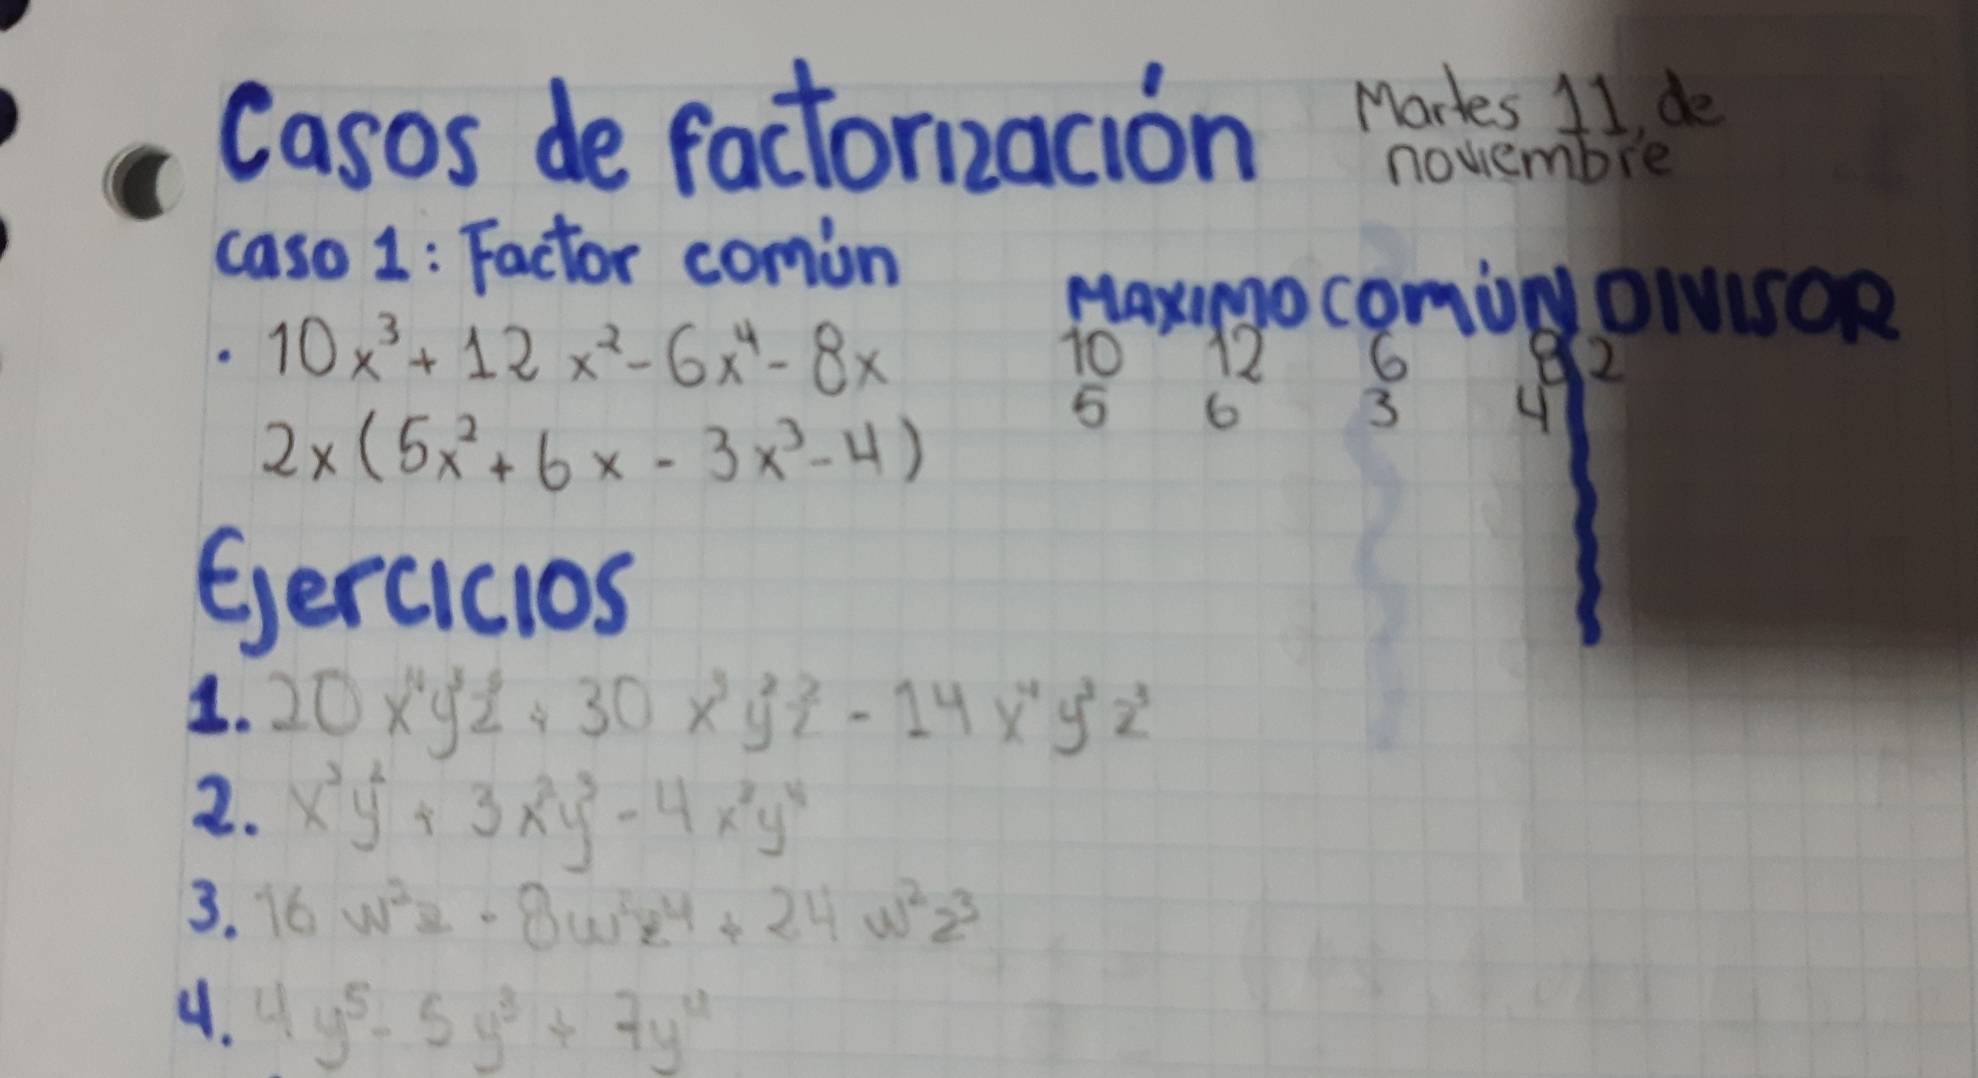 Casos de factorización
Martes 11, de
noviembre
caso 1: Factor común
MAXIMO COMÚN DIVISOR
· 10x³ + 12x² - 6x⁴ - 8x
10 12 6 8 2
2x(5x² + 6x - 3x³ - 4)
5 6 3 4
Ejercicios
1. 20 x⁴y³z + 30 x³y²z² - 14x⁴y³z³
2. x³y² + 3x²y³ - 4x³y⁴
3. 16 w²z - 8w z⁴ + 24 w²z³
4. 4y⁵ - 5y³ + 7y⁴